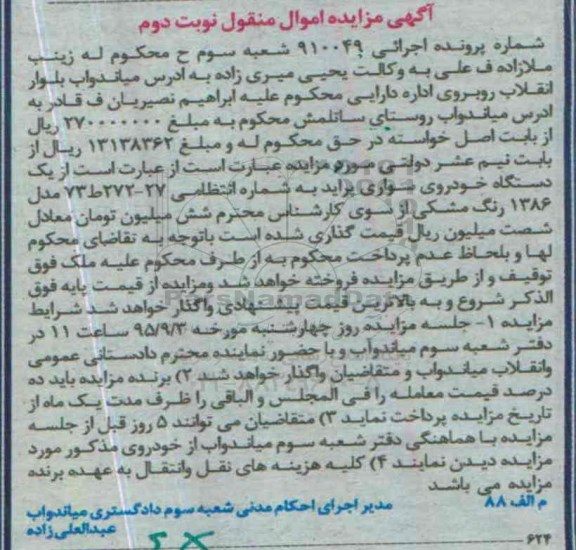 آگهی مزایده اموال منقول نوبت دوم
شماره پرونده اجرائی ۹۱۰۰۴۹ شعبه سوم ح محکوم له زینب
ملازاده ف علی به وکالت یحیی میری زاده به ادرس میاندواب بلوار
انقلاب روبروی اداره دارایی محکوم علیه ابراهیم نصیریان ف قادر به
ادرس میاندواب روستای ساتلمش محکوم به مبلغ ۲۷۰۰۰۰۰۰۰ ریال
از بابت اصل خواسته در حق محکوم له و مبلغ ۱۳۱۳۸۳۶۲ ریال از
بابت نیم عشر دولتی مورد مزایده عبارت است از عبارت است از یک
دستگاه خودروی سواری پراید به شماره انتظامی ۲۷-۲۷۲ط۷۳ مدل
۱۳۸۶ رنگ مشکی از سوی کارشناس محترم شش میلیون تومان معادل
شصت میلیون ریال قیمت گذاری شده است باتوجه به تقاضای محکوم
لها و بلحاظ عدم پرداخت محکوم به از طرف محکوم علیه ملک فوق
توقیف و از طریق مزایده فروخته خواهد شد ومزایده از قیمت پایه فوق
الذکر شروع و به بالاترین قیمت پیشنهادی واگذار خواهد شد شرایط
مزایده ۱- جلسه مزایده روز چهارشنبه مورخه ۹۵/۹/۳ ساعت ۱۱ در
دفتر شعبه سوم میاندواب و با حضور نماینده محترم دادستانی عمومی
وانقلاب میاندواب و متقاضیان واگذار خواهد شد ۲) برنده مزایده باید ده
درصد قیمت معامله را فی المجلس و الباقی را ظرف مدت یک ماه از
تاریخ مزایده پرداخت نماید ۳) متقاضیان می توانند ۵ روز قبل از جلسه
مزایده با هماهنگی دفتر شعبه سوم میاندواب از خودروی مذکور مورد
مزایده دیدن نمایند ۴) کلیه هزینه های نقل وانتقال به عهده برنده
مزایده می باشد
م الف ۸۸ مدیر اجرای احکام مدنی شعبه سوم دادگستری میاندواب
عبدالعلی زاده
۶۲۴